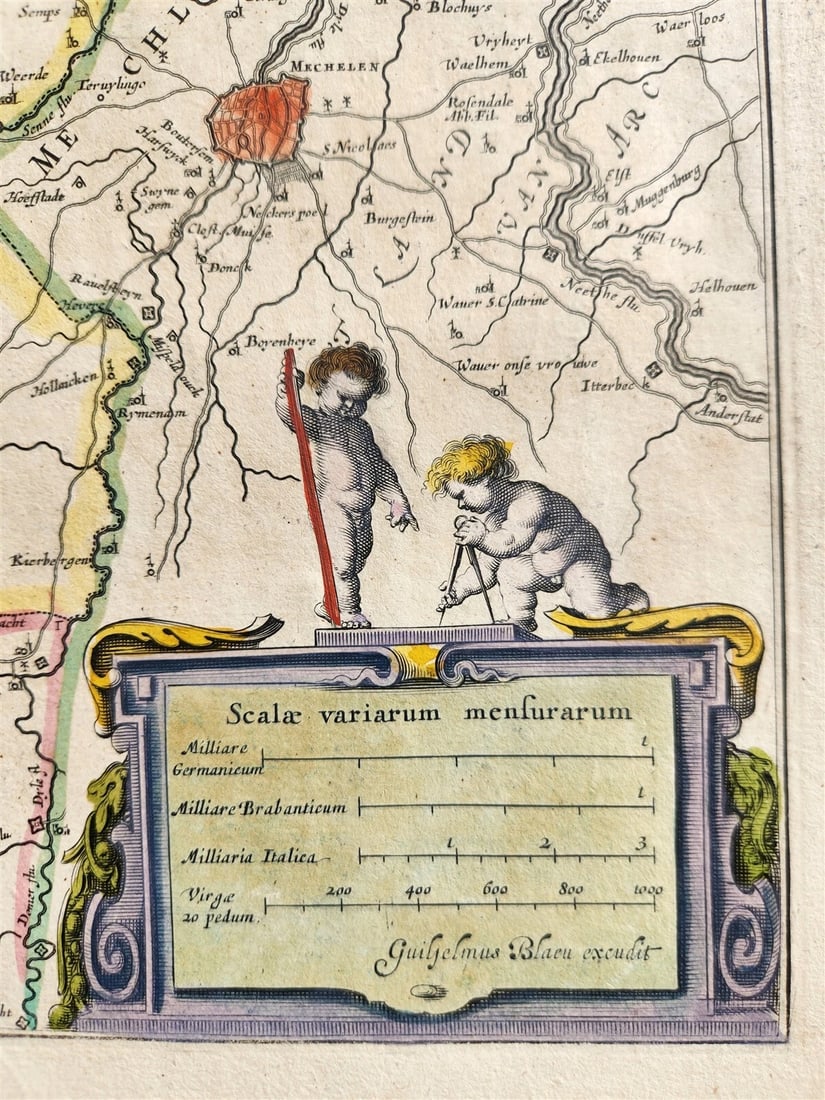 Semps
Blochuys
Dyle flu
Waer loos
Vryheyt
Waelhem
Ekelhouen
MECHELEN
Weerde
Teruylingo
Senne flu.
ME CHL
Rosendale
Abb. Fil.
LAND VAN ARC
Bouterſem
Harſuyck
S. Nicolaes
Elſt
Muggenburg
Hoefſtade
Steyne
gem
Neckers poel
Burgeſtein
Duffel Vryh.
Cloſt. Muiſe
Donck
Rauelſteyn
Heuere
Neethe flu.
Helhouen
Wauer S. Catrine
Boyenheye
Miſpeldonck
Wauer onſe vrouwe
Hollaicken
Itterbeck
Rymenam
Anderſtat
Kierbergen
acht
Scalæ variarum menſurarum
Milliare
Germanicum
1
Milliare Brabanticum
1
Milliaria Italica
1 2 3
Virgæ
20 pedum.
200 400 600 800 1000
Dyle fl
Demer flu.
Guiljelmus Blaeu excudit
ht